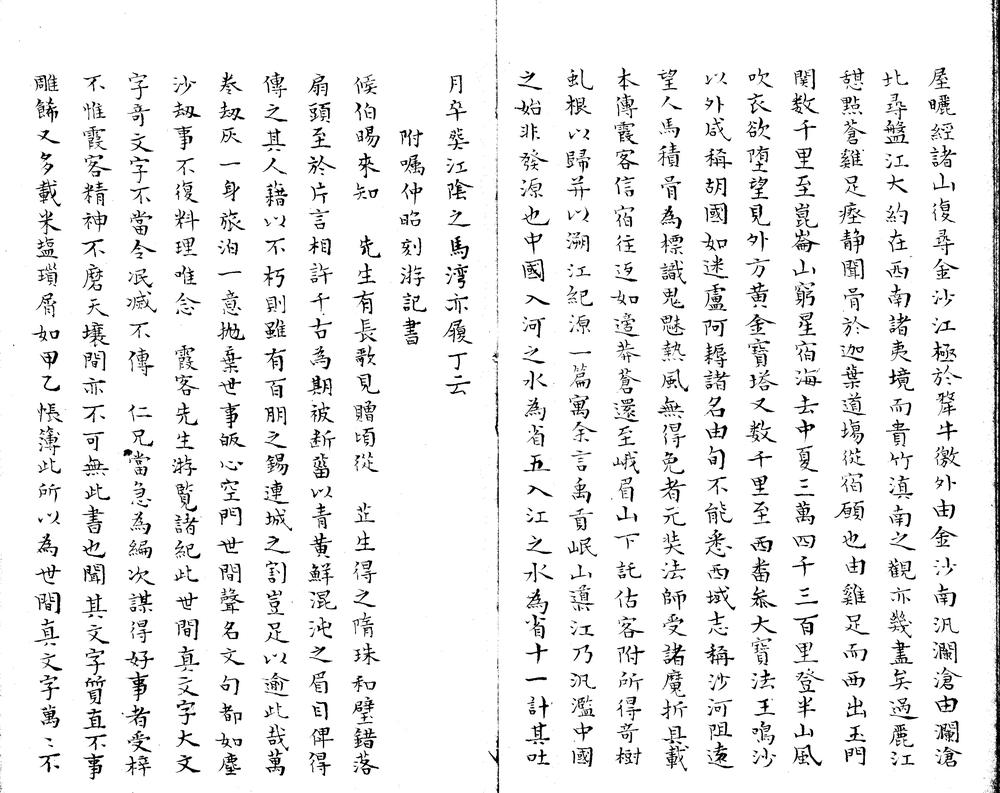 屋曬經諸山復尋金沙江極於犛牛徼外由金沙南汎瀾滄由瀾滄
北尋盤江大約在西南諸夷境而貴竹滇南之觀亦幾盡矣過麗江
憇點蒼雞足瘞静聞骨於迦葉道塲從宿願也由雞足而西出玉門
関数千里至崑崙山窮星宿海去中夏三萬四千三百里登半山風
吹衣欲堕望見外方黄金寶塔又数千里至西畨叅大寶法王鳴沙
以外咸稱胡國如迷盧阿耨諸名由旬不能悉西域志稱沙河阻遠
望人馬積骨為標識鬼魅熱風無得免者元奘法師受諸魔折具載
本傳霞客信宿往返如適莽蒼還至峨眉山下託估客附所得奇樹
虬根以歸并以溯江紀源一篇寓余言禹貢岷山導江乃汎濫中國
之始非發源也中國入河之水為省五入江之水為省十一計其吐
月卒葬江陰之馬湾亦履丁云
附囑仲昭刻游記書
候伯暘來知 先生有長歌見贈頃從 芷生得之隋珠和璧錯落
扇頭至於片言相許千古為期被斷菑以青黄鮮混沌之眉目俾得
傳之其人藉以不朽則雖有百朋之錫連城之割豈足以逾此哉萬
卷刼灰一身旅泊一意抛棄世事皈心空門世間聲名文句都如塵
沙刼事不復料理唯念 霞客先生游覧諸紀此世間真文字大文
字奇文字不當令泯滅不傳 仁兄當急為編次謀得好事者受梓
不惟霞客精神不磨天壤間亦不可無此書也聞其文字質直不事
雕飾又多載米塩瑣屑如甲乙帳簿此所以為世間真文字萬〻不